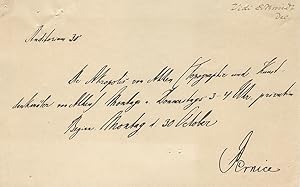 Auditorium 38
Die Akropolis von Athen, Topographie und Kunst-
denkmäler von Athen, Montag u. Donnerstag 3-4 Uhr, privatim
Beginn Montag d. 30 October
Pernice